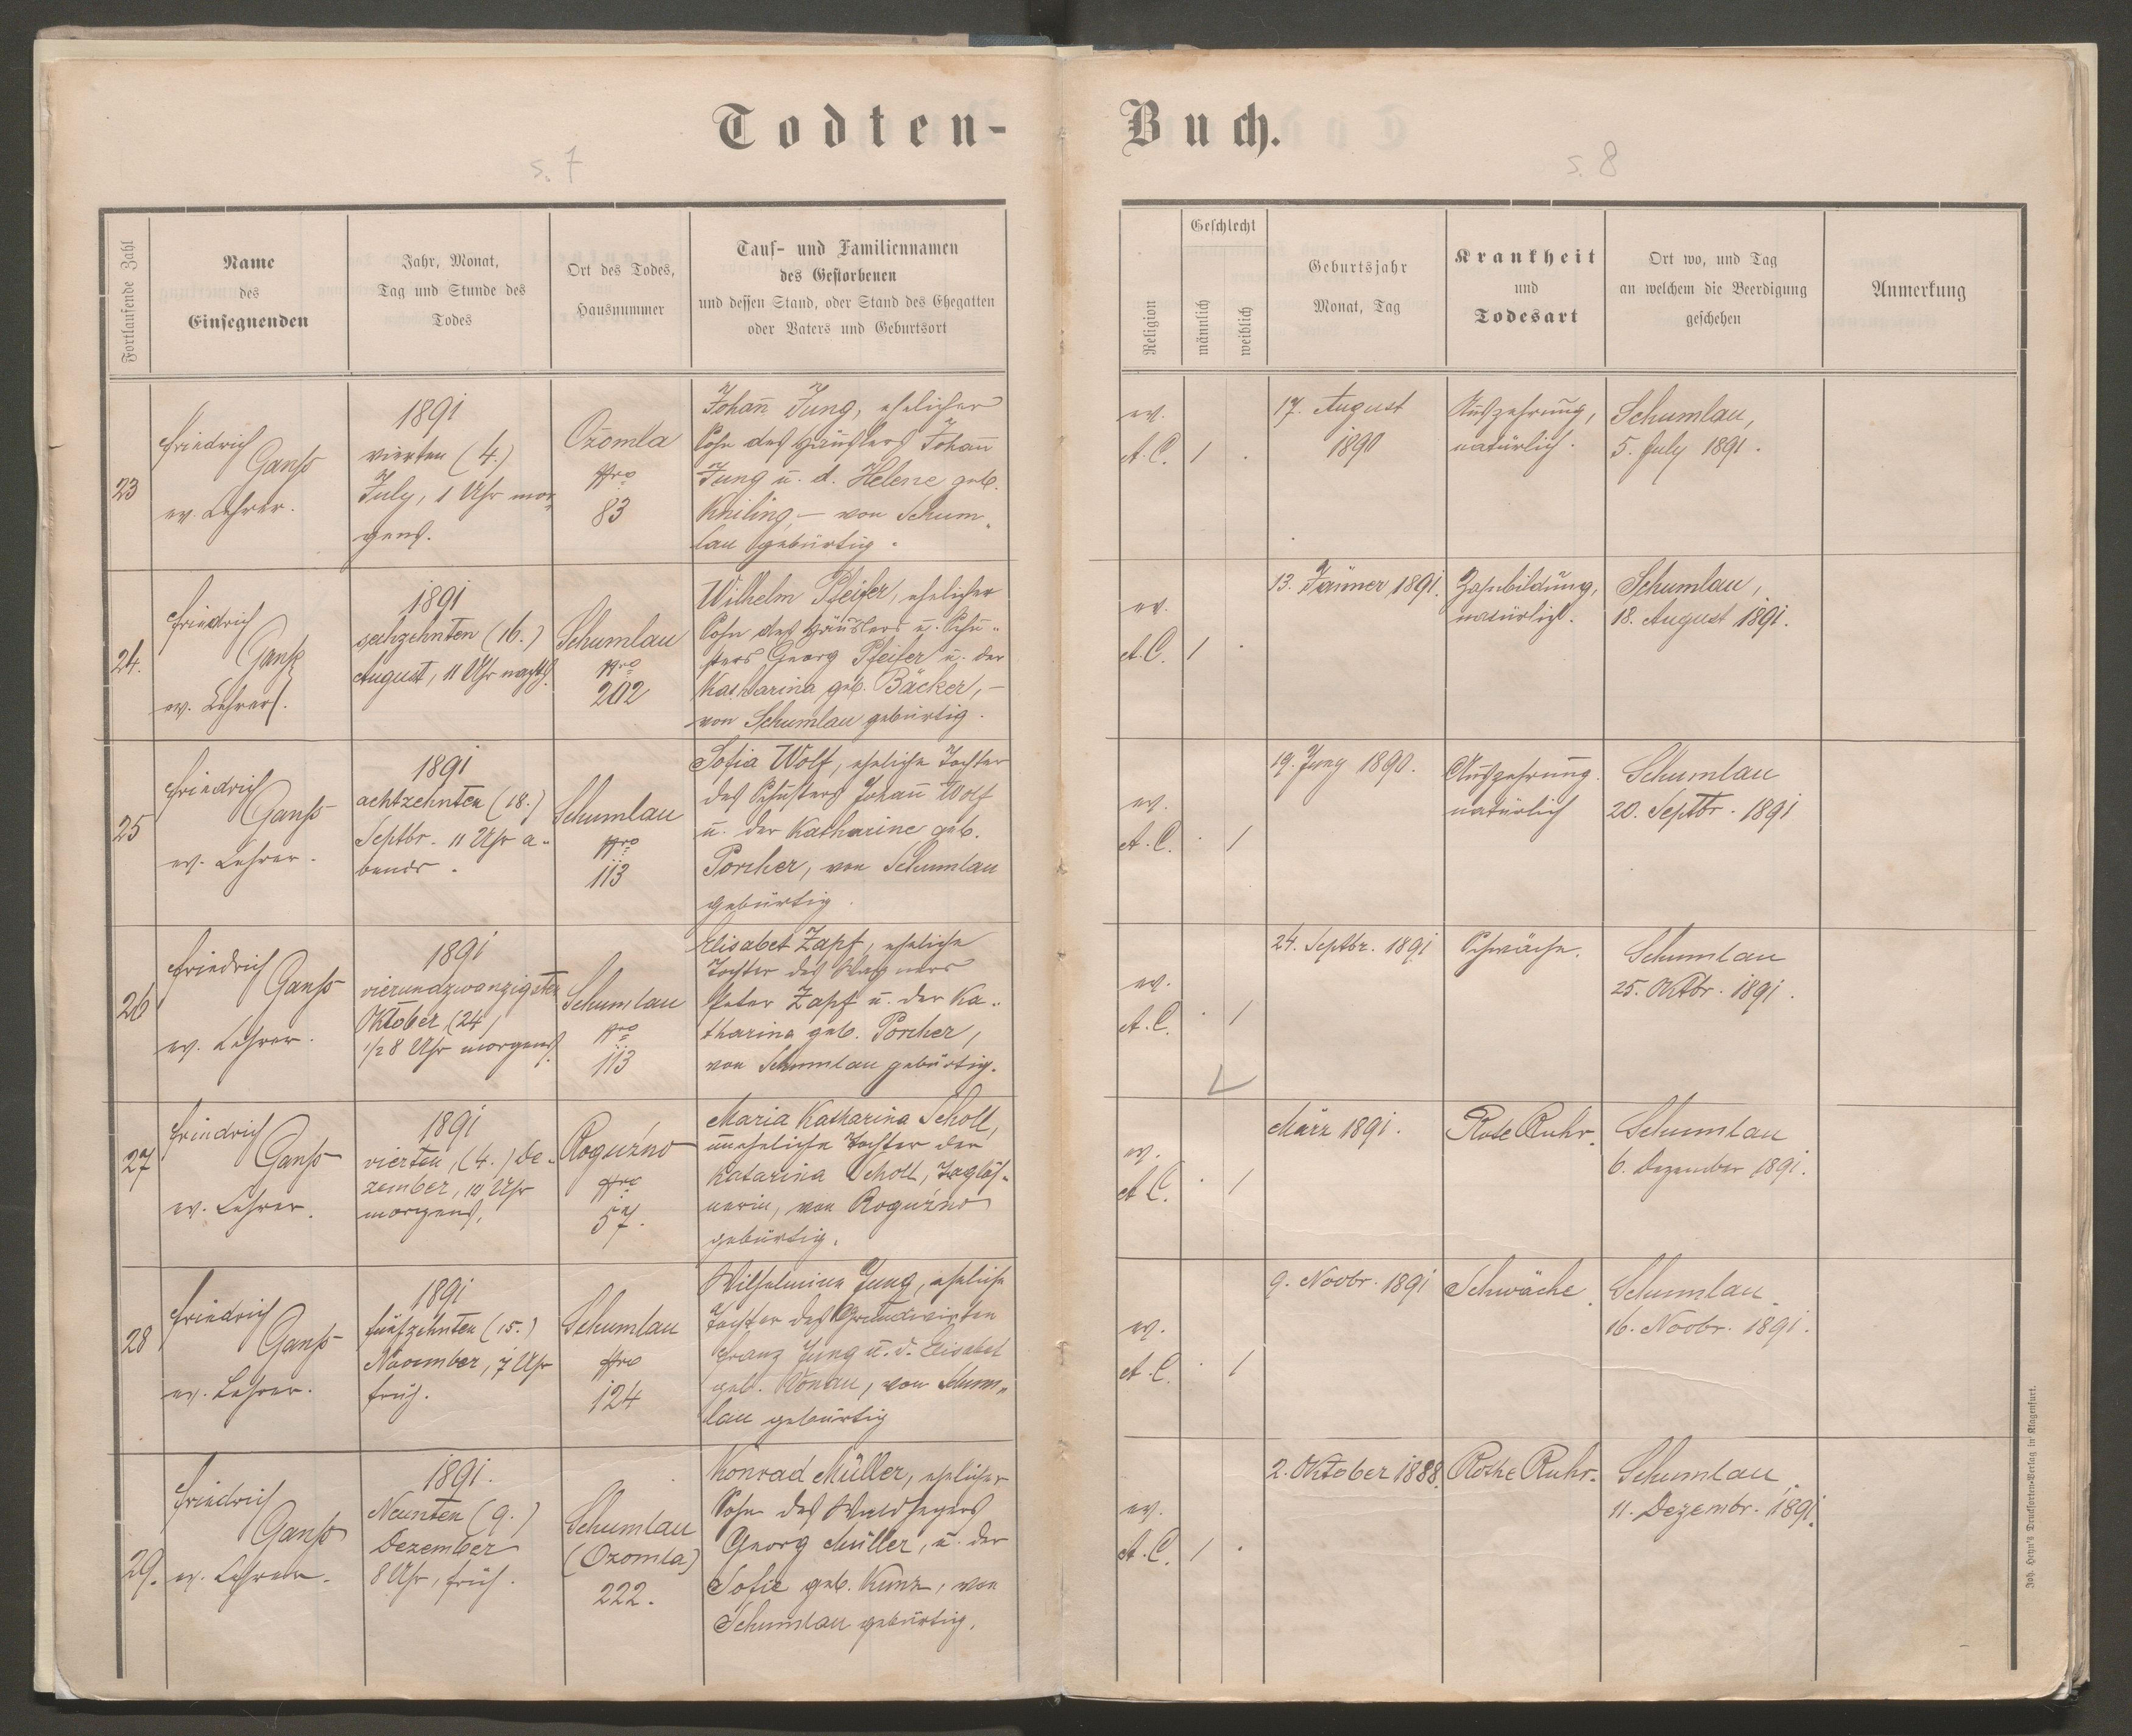 Todten-
Buch.
s. 7
s. 8
Fortlaufende Zahl
Name
des
Einsegnenden
Jahr, Monat,
Tag und Stunde des
Todes
Ort des Todes,
Hausnummer
Tauf- und Familiennamen
des Gestorbenen
und dessen Stand, oder Stand des Ehegatten
oder Vaters und Geburtsort
Religion
Geschlecht
männlich
weiblich
Geburtsjahr
Monat, Tag
Krankheit
und
Todesart
Ort wo, und Tag
an welchem die Beerdigung
geschehen
Anmerkung
23
Friedrich
Ganß
ev. Lehrer.
1891
vierten (4.)
July, 1 Uhr mor„
gens.
Ozomla
Nro
83
Johann Jung, ehelicher
Sohn des Häuslers Johann
Jung u. d. Helene geb.
Kniling – von Schum„
lau gebürtig.
ev.
A. C.
1
.
17. August
1890
Auszehrung,
natürlich.
Schumlau,
5. July 1891.
24.
Friedrich
Ganß
ev. Lehrer.
1891
sechzehnten (16.)
August, 11 Uhr nachts.
Schumlau
Nro
202
Wilhelm Pfeifer, ehelicher
Sohn des Häuslers u. Schu„
sters Georg Pfeifer u. der
Katharina geb. Bäcker, –
von Schumlau gebürtig.
ev.
A. C.
1
.
13. Jänner 1891.
Zahnbildung,
natürlich.
Schumlau,
18. August 1891.
25
Friedrich
Ganß
ev. Lehrer.
1891
achtzehnten (18.)
Septbr. 11 Uhr a„
bends.
Schumlau
Nro
113
Sofia Wolf, eheliche Tochter
des Schusters Johann Wolf
u. der Katharine geb.
Porcher, von Schumlau
gebürtig.
ev.
A. C.
.
1
19. Juny 1890.
Auszehrung.
natürlich
Schumlau
20. Septbr. 1891
26
Friedrich
Ganß
ev. Lehrer.
1891
vierundzwanzigsten
Oktober (24)
1/2 8 Uhr morgens.
Schumlau
Nro
113
Elisabet Zapf, eheliche
Tochter des Wagners
Peter Zapf u. der Ka„
tharina geb. Porcher,
von Schumlau gebürtig.
ev.
A. C.
.
1
24. Septbr. 1891
Schwäche.
Schumlau
25. Oktbr. 1891.
27
Friedrich
Ganß
ev. Lehrer.
1891
vierten, (4.) De„
zember, 10 Uhr
morgens.
Roguźno
Nro
57.
Maria Katharina Scholl,
uneheliche Tochter der
Katarina Scholl, Taglöh„
nerin, von Roguźno
gebürtig.
ev.
A. C.
.
1
März 1891.
Rote Ruhr.
Schumlau
6. Dezember 1891.
28
Friedrich
Ganß
ev. Lehrer.
1891
fünfzehnten (15.)
November, 7 Uhr
früh.
Schumlau
Nro
124
Wilhelmine Jung, eheliche
Tochter des Grundwirten
Franz Jung u. d. Elisabet
geb. Konau, von Schum„
lau gebürtig
ev.
A. C.
.
1
9. Novbr. 1891
Schwäche.
Schumlau
16. Novbr. 1891.
29.
Friedrich
Ganß
ev. Lehrer.
1891.
Neunten (9.)
Dezember
8 Uhr, früh.
Schumlau
(Ozomla)
222.
Konrad Müller, ehelicher
Sohn des Waldhegers
Georg Müller, u. der
Sofie geb. Kunz, von
Schumlau gebürtig.
ev.
A. C.
1
.
2. Oktober 1888.
Rothe Ruhr.
Schumlau
11. Dezembr. 1891.
Joh. Heyn's Drucksorten-Verlag in Klagenfurt.